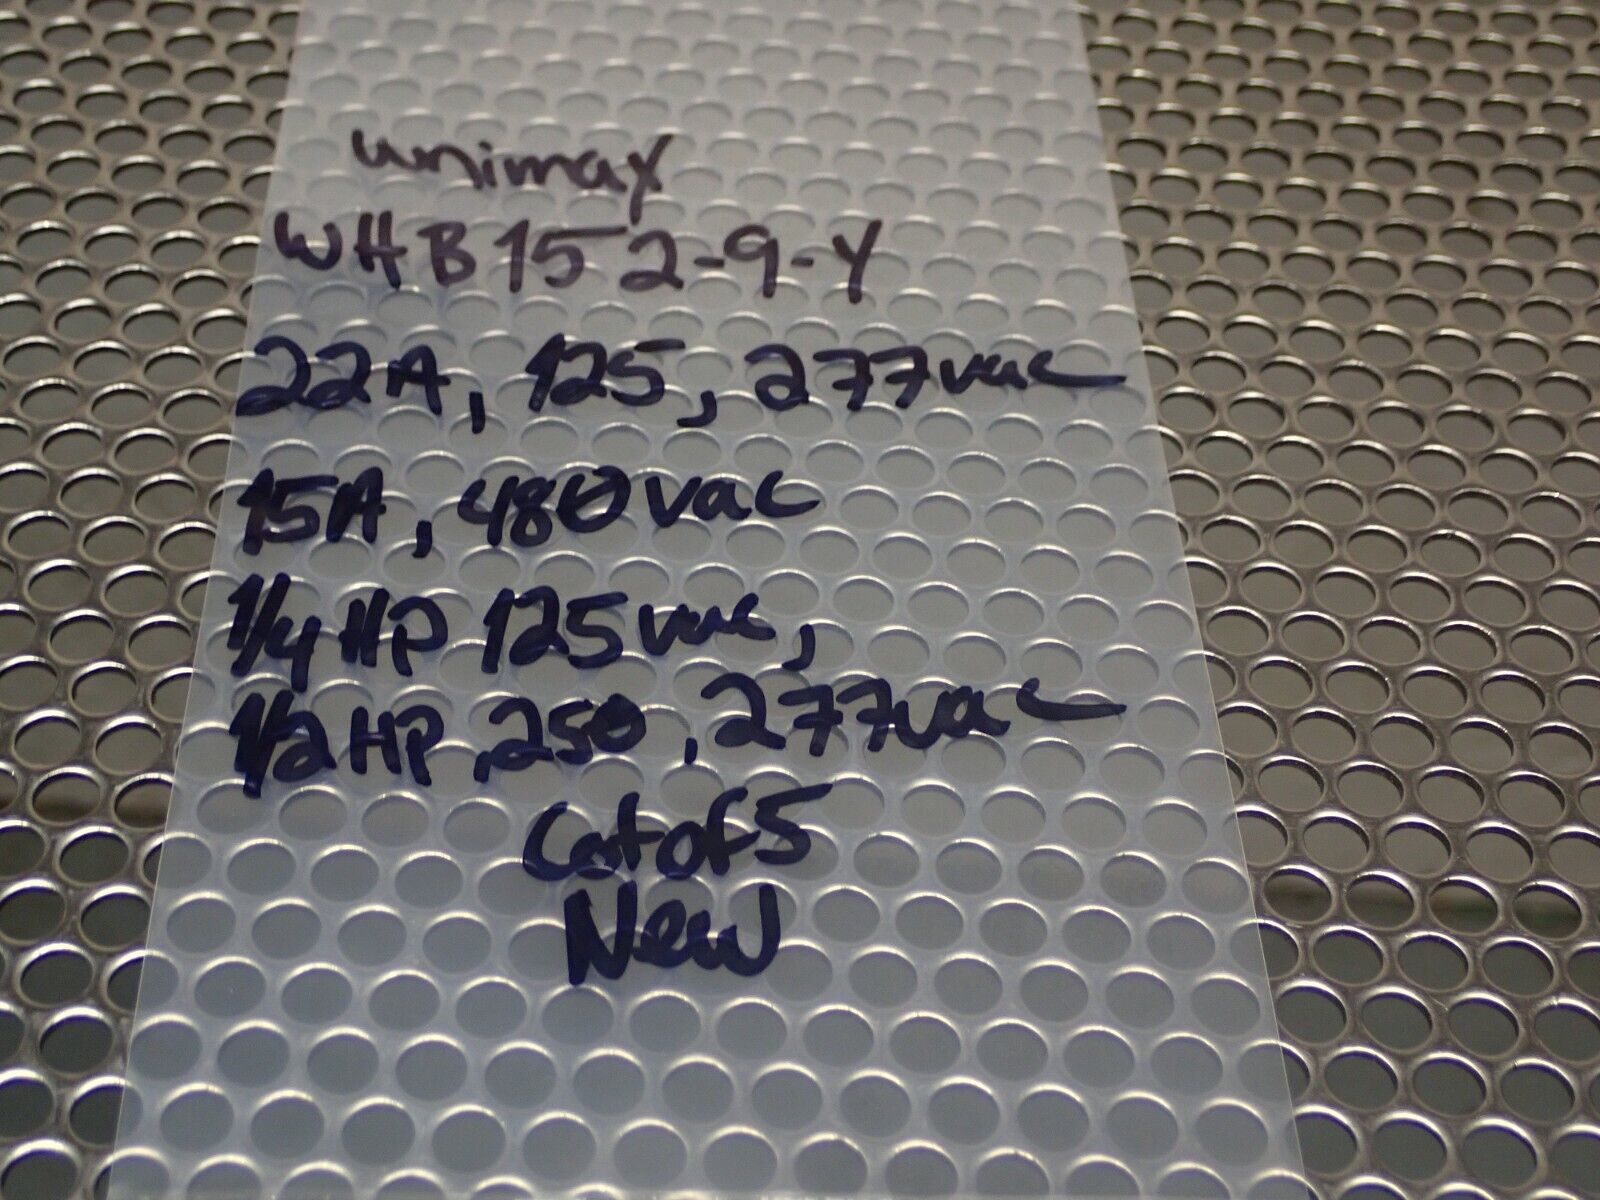 unimax
WHB152-9-Y
22A, 125, 277vac
15A, 480vac
1/4HP 125vac,
1/2HP, 250, 277vac
Lot of 5
New